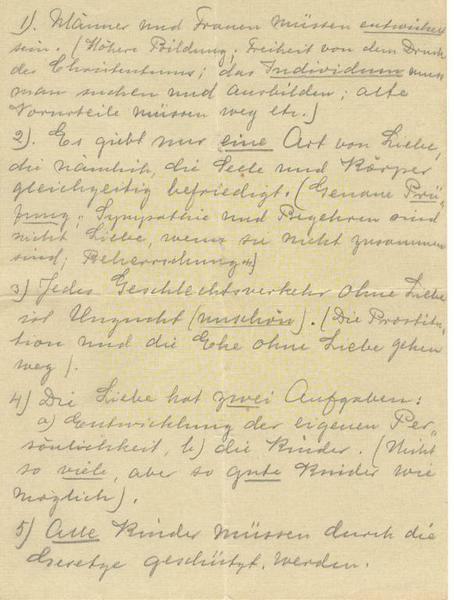 1). Männer und Frauen müssen entwickelt
sein. (Höhere Bildung; Freiheit von dem Druck
des Christentums; das Individum muss
man suchen und ausbilden; alte
Vorurteile müssen weg etc.)
2). Es giebt nur eine Art von Liebe,
die nämlich, die Seele und Körper
gleichzeitig befriedigt. (Genaue Prü-
fung; Sympathie und Begehren sind
nicht Liebe, wenn sie nicht zusammen
sind; Beherrschung
3) Jedes Geschlechtsverkehr ohne Liebe
ist Unzucht (unschön). (Die Prostitu-
tion und die Ehe ohne Liebe gehen
weg).
4) Die Liebe hat zwei Aufgaben:
a) Entwicklung der eigenen Per-
sönlichkeit, b) die Kinder. (Nicht
so viele, aber so gute Kinder wie
möglich).
5) Alle Kinder müssen durch die
Gesetze geschützt werden.